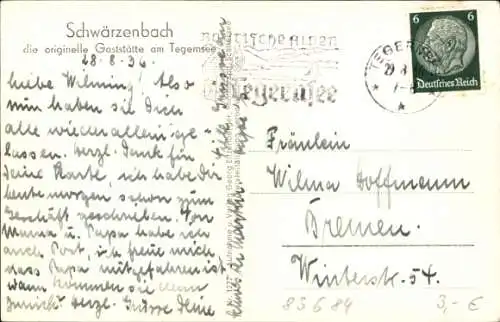 Schwärzenbach
die originelle Gaststätte am Tegernsee
28.8.36.
Liebe Wilming! Also
nun haben sie Dich
alle wieder alleinige-
lassen. Herzl. Dank für
Deine Karte, ich habe Dir
heute morgen schon zum
Geschäft geschrieben. Von
Mama u. Papa habe ich
auch Post, ich freue mich
dass Papa mitgefahren ist
wann kommen sie denn
zurück? Herzl. Grüsse Deine
Bayrische Alpen
Tegernsee
TEGERNSEE
6 6
Deutsches Reich
Fräulein
Wilma Hoffmann
Bremen.
Winterstr. 54.
83684
3,- €